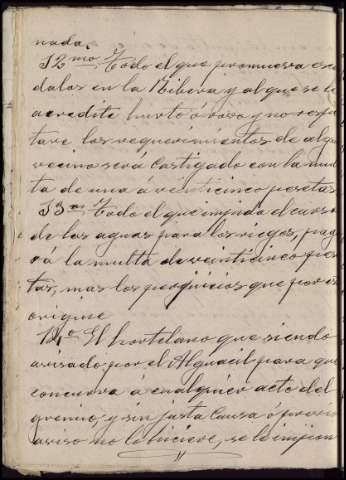 nada.
12mo Todo el que promueva es
dalos en la Ribera y al que se le
acredite hurtó ó roso y no respe
tare los requerimientos de algun
vecino será Castigado con la mul
ta de una á veinticinco pesetas
13mo Todo el que impida el curso
de las aguas para los riegos, paga
rá la multa de veinticinco pese
tas, mas los perjuicios que por es
origine
14o El hortelano que siendo
avisado por el Alguacil para que
concurra á cualquier acto del
gremio, y sin justa Causa ó previo
aviso no lo hiciere, se le impon